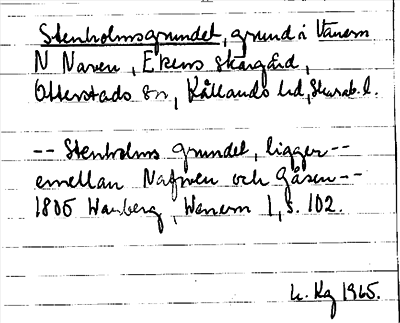 Stenholmsgrundet, grund i Vänern
N Naven, Ekens skärgård,
Otterstads sn, Kållands hd, Skarab. l.
-- Stenholms grundet, ligger --
emellan Nafwen och Gåsen --
1805 Warberg, Wenern 1, s. 102.
1965.